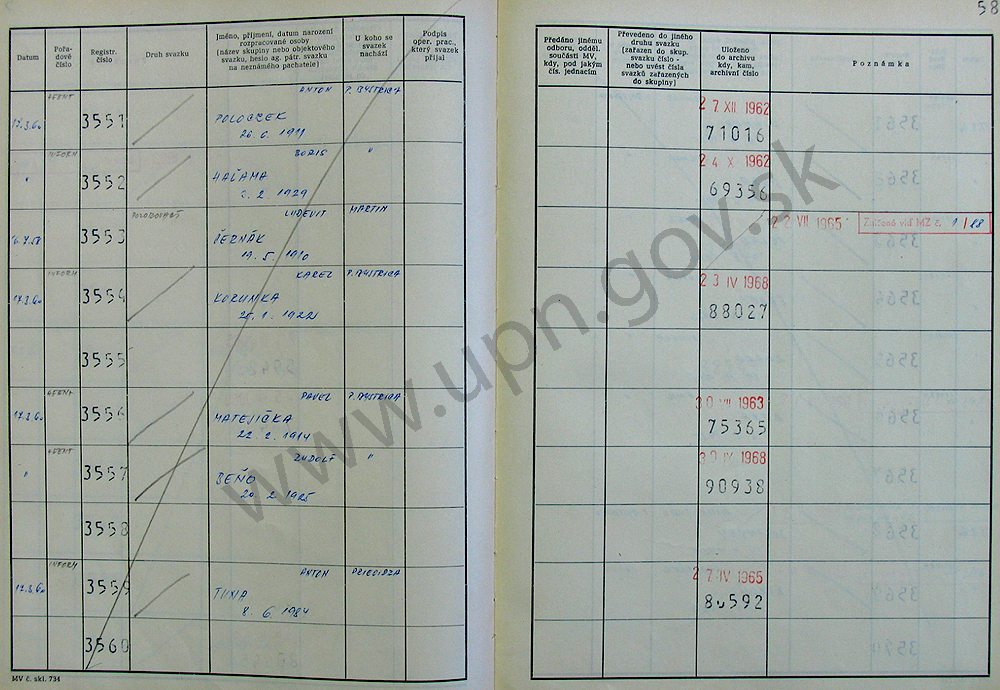 58
Datum
Pořa-
dové
číslo
Registr.
číslo
Druh svazku
Jméno, příjmení, datum narození
rozpracované osoby
(název skupiny nebo objektového
svazku, heslo ag. pátr. svazku
na neznámého pachatele)
U koho se
svazek
nachází
Podpis
oper. prac.,
který svazek
přijal
Předáno jinému
odboru, odděl.
součásti MV,
kdy, pod jakým
čís. jednacím
Převedeno do jiného
druhu svazku
(zařazen do skup.
svazku číslo -
nebo uvést čísla
svazků zařazených
do skupiny)
Uloženo
do archivu
kdy, kam,
archivní číslo
Poznámka
AGENT ANTON P. BYSTRICA
17.3.60 3551 POLOCZEK 27 XII 1962
26. 6. 1911 71016
INFORM BORIS "
" 3552 HALAMA 24 X 1962
2. 1929 69356
ĽUDEVIT MARTIN
3553 ČERNÁK 22 VII 1965 Zničené viď MZ č. 1/88
19. 5. 1910
INFORM KAREL P. BYSTRICA
17.3.60 3554 KORUNKA 23 IV 1968
25. 1. 1922 88027
3555
AGENT PAVEL P. BYSTRICA
17.3.60 3556 MATEJIČKA 1963
22. 2. 1914 75365
AGENT RUDOLF "
" 3557 BEŇO 30 IV 1968
20. 2. 1925 90938
3558
INFORM ANTON
17.3.60 3559 27 IV 1965
8. 6. 80592
3560
MV č. skl. 734
www.upn.gov.sk